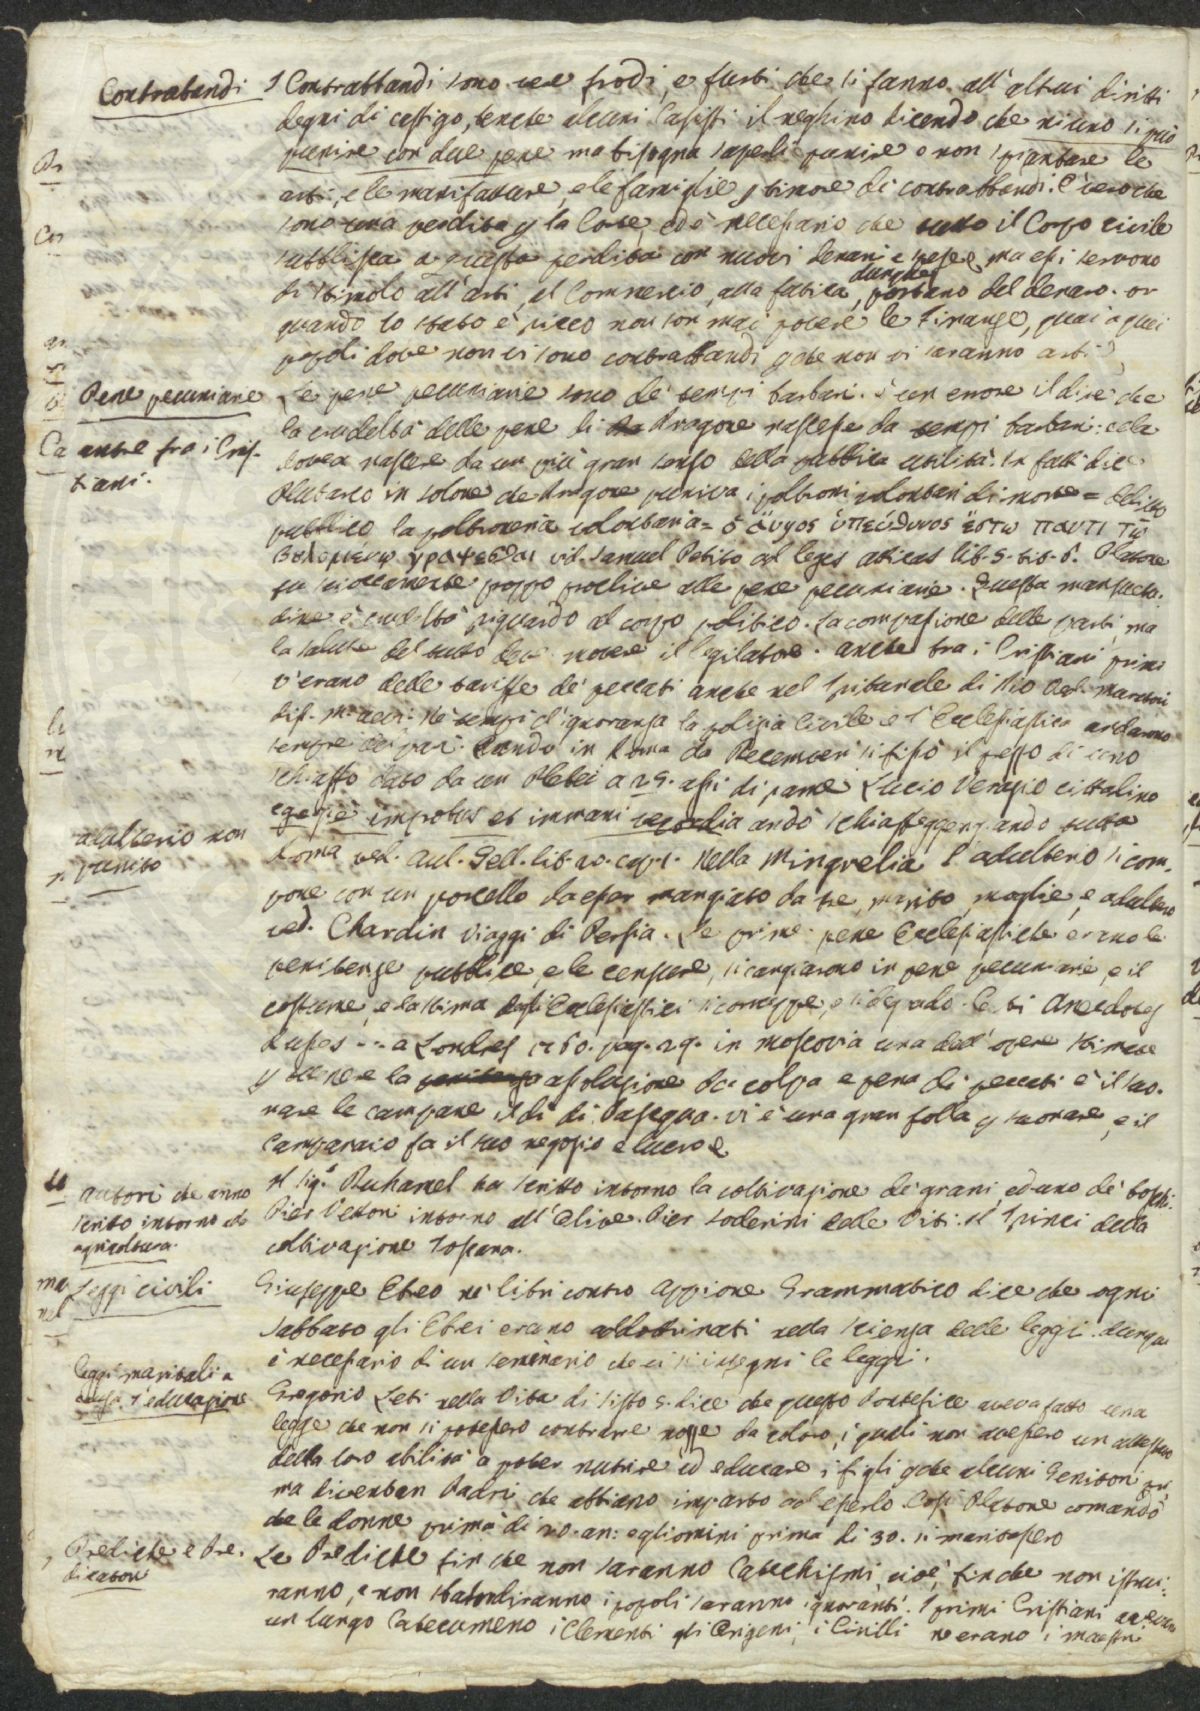 Contrabandi
I Contrabbandi sono vere frodi, e furti che si fanno all'altrui diritti
degni di castigo, benche alcuni Casisti il neghino dicendo che niuno si può
punire con due pene ma bisogna saperli punire o non spiantare le
arti, e le manifatture, e le famiglie p timore di contrabbandi. È vero che
sono una perdita p la Corte, ed è necessario che tutto il Corpo civile
subblisca a questa perdita con nuovi denari e spese, ma essi servono
di stimolo all'arti, al Commercio, alla fatica, dunque portano del denaro. or
quando lo stato è ricco non son mai povere le Finanze, guai a quei
popoli dove non vi sono contrabbandi, pche non vi saranno arti
Pene pecuniarie
anche fra i Cris-
tiani.
Le pene pecuniarie sono de' tempi barbari. è un errore il dire che
la crudeltà delle pene di Dragone nascesse da tempi barbari: ella
dovea nascere da un più gran senso della pubblica utilità. In fatti dice
Plutarco in Solone che Dragone puniva i poltroni volontari di morte = delitto
pubblico la poltroneria volontaria = ὁ ἄυγος ὑπεύθυνος ἔστω παντι τῷ
βολομενῳ γραφεσθαι vid. Samuel Petito ad leges atticas lib. 5. tit. 6. Platone
fu sicuramente troppo proclive alle pene pecuniarie. Questa mansuetu-
dine è crudeltà riguardo al corpo politico. La compassione delle parti, ma
la salute del tutto deve movere il legislatore. anche tra i Cristiani primi
v'erano delle tariffe de' peccati anche nel Tribunale di Dio Ved. Muratori
diss. M. aevi. Ne' tempi d'ignoranza la polizia Civile e l'Ecclesiastica andarono
sempre del pari. Quando in Roma da Decemviri si fissò il prezzo di uno
schiaffo dato da un Plebei a 25. assi di rame Lucio Verazio cittadino
egregiè improbus et immani vecordia andò schiaffeggiando tutta
Roma ved. Aul. Gell. lib. 20. cap. 1. Nella Mingrelia l'adulterio si com-
pone con un porcello da esser mangiato da tre, marito, moglie, e adultero
ved. Chardin viaggi di Persia. Le prime pene Ecclesiastiche erano le
adulterio non
punito
penitenze pubblice, e le censure, si cangiarono in pene pecuniarie, e il
costume, e la stima degli Ecclesiastici si corruppe, e si degradò. le ti Anecdotes
Russes ... a Londres 1760. pag. 29. in Moscovia una dell'opere stimate
p ottenere la assoluzione da colpa e pena di peccati è il suo-
nare le campane il di di Pasqua. vi è una gran folla p suonare, e il
Campanaio fa il suo negozio e lucro
autori che anno
scritto intorno ad
agricoltura.
Il Sig.r Duhamel ha scritto intorno la coltivazione de' grani, ed uno de' boschi.
Pier Vettori intorno all'Olive. Pier Soderini delle Viti. Il Trinci della
coltivazione Toscana.
Leggi civili
Giuseppe Ebreo ne' libri contro Appione Grammatico dice che ogni
sabbato gli Ebrei erano addottrinati nella scienza delle leggi. dunque
è necessario di un seminario che ci s'insegni le leggi.
leggi maritali a
causa d'educazione
Gregorio Leti nella Vita di Sisto 5. dice che questo Pontefice aveva fatto una
legge che non si potessero contrarre nozze da coloro, i quali non avessero un attestato
della loro abilità a poter nutrire ed educare i figli pche alcuni Genitori pri
ma diventan Padri che abbiano imparto ad esserlo. Così Platone comandò
che le donne prima di 20. an: e gliomini prima di 30. si maritassero
Prediche e Pre-
dicatori
Le Prediche finche non saranno Catechismi, cioè, finche non istrui-
ranno, e non sbalordiranno i popoli saranno ignoranti. I primi Cristiani avevano
un lungo Catecumeno i Clementi gli Origeni, i Cirilli ne erano i maestri